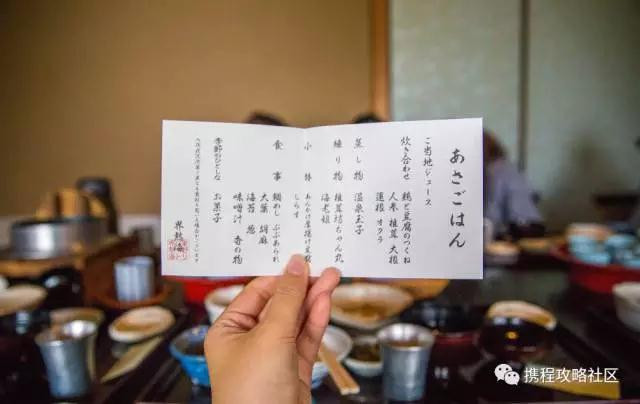 あさごはん
ご当地ジュース
炊き合わせ 鶏と豆腐のつくね
人参 椎茸 大根
蓮根 オクラ
蒸し物 温泉玉子
練り物 椎茸坊ちゃん丸
海老姫
小鉢 あんかけ厚揚げ豆腐
しらす
食事 鯛めし ぶぶあられ
大葉 胡麻
海苔 葱
味噌汁 香の物
季節のひとしな お菓子
携程攻略社区